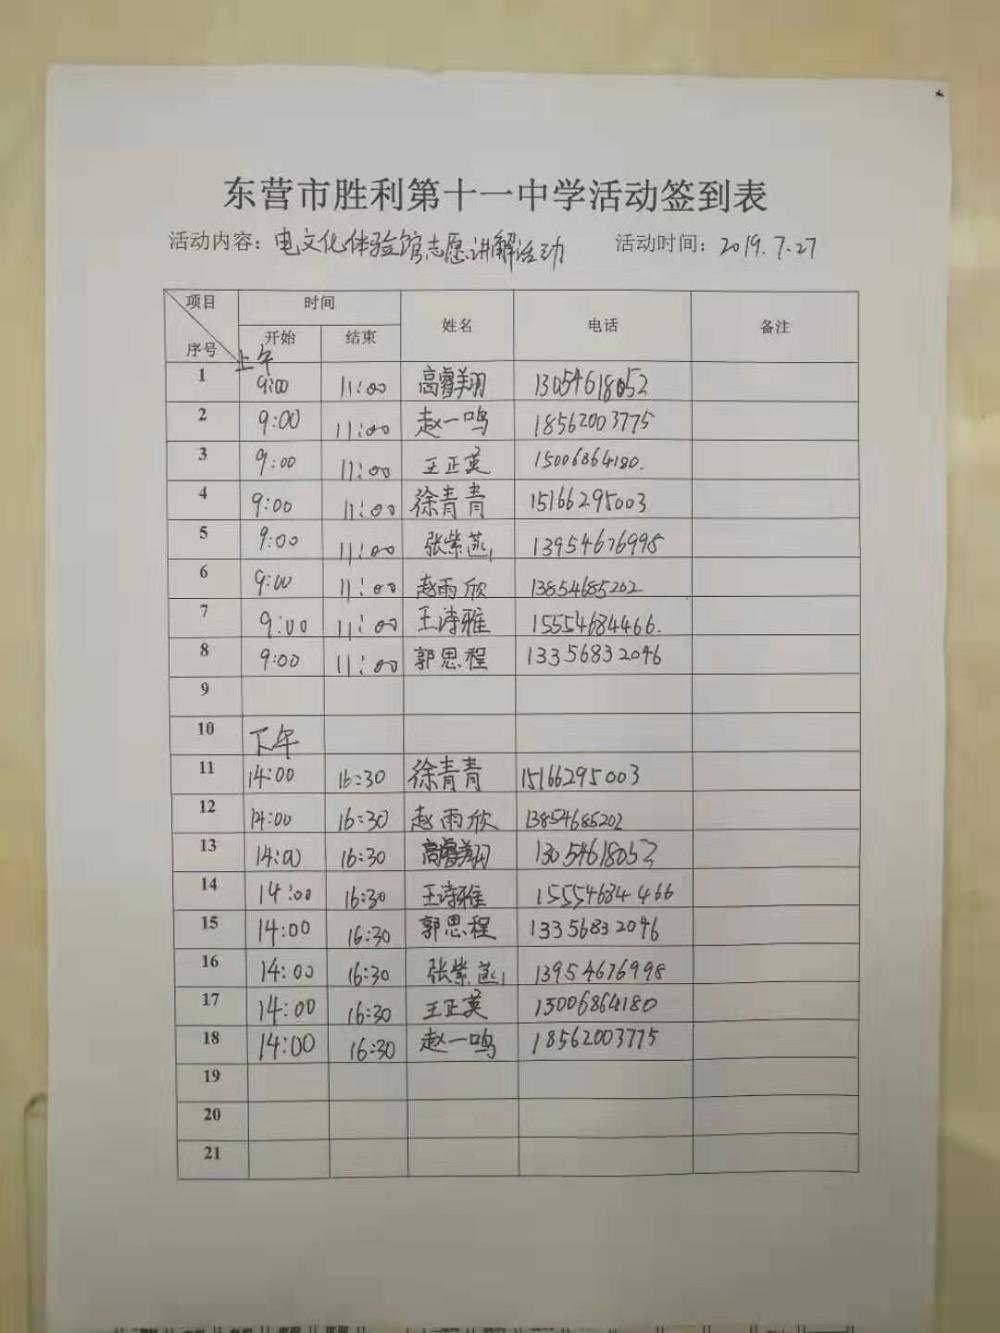 东营市胜利第十一中学活动签到表
活动内容：电文化体验馆志愿讲解活动 活动时间：2019.7.27
项目 时间 姓名 电话 备注
序号 开始 结束
上午
1 9:00 11:00 高睿翔 13054618052
2 9:00 11:00 赵一鸣 18562003775
3 9:00 11:00 王正英 15006864180.
4 9:00 11:00 徐青青 15166295003
5 9:00 11:00 张紫燕 13954676998
6 9:00 11:00 赵雨欣 13854685202
7 9:00 11:00 王诗雅 15554684466.
8 9:00 11:00 郭思程 13356832046
9
10 下午
11 14:00 16:30 徐青青 15166295003
12 14:00 16:30 赵雨欣 13854685202
13 14:00 16:30 高睿翔 13054618052
14 14:00 16:30 王诗雅 15554684466
15 14:00 16:30 郭思程 13356832046
16 14:00 16:30 张紫燕 13954676998
17 14:00 16:30 王正英 15006864180
18 14:00 16:30 赵一鸣 18562003775
19
20
21